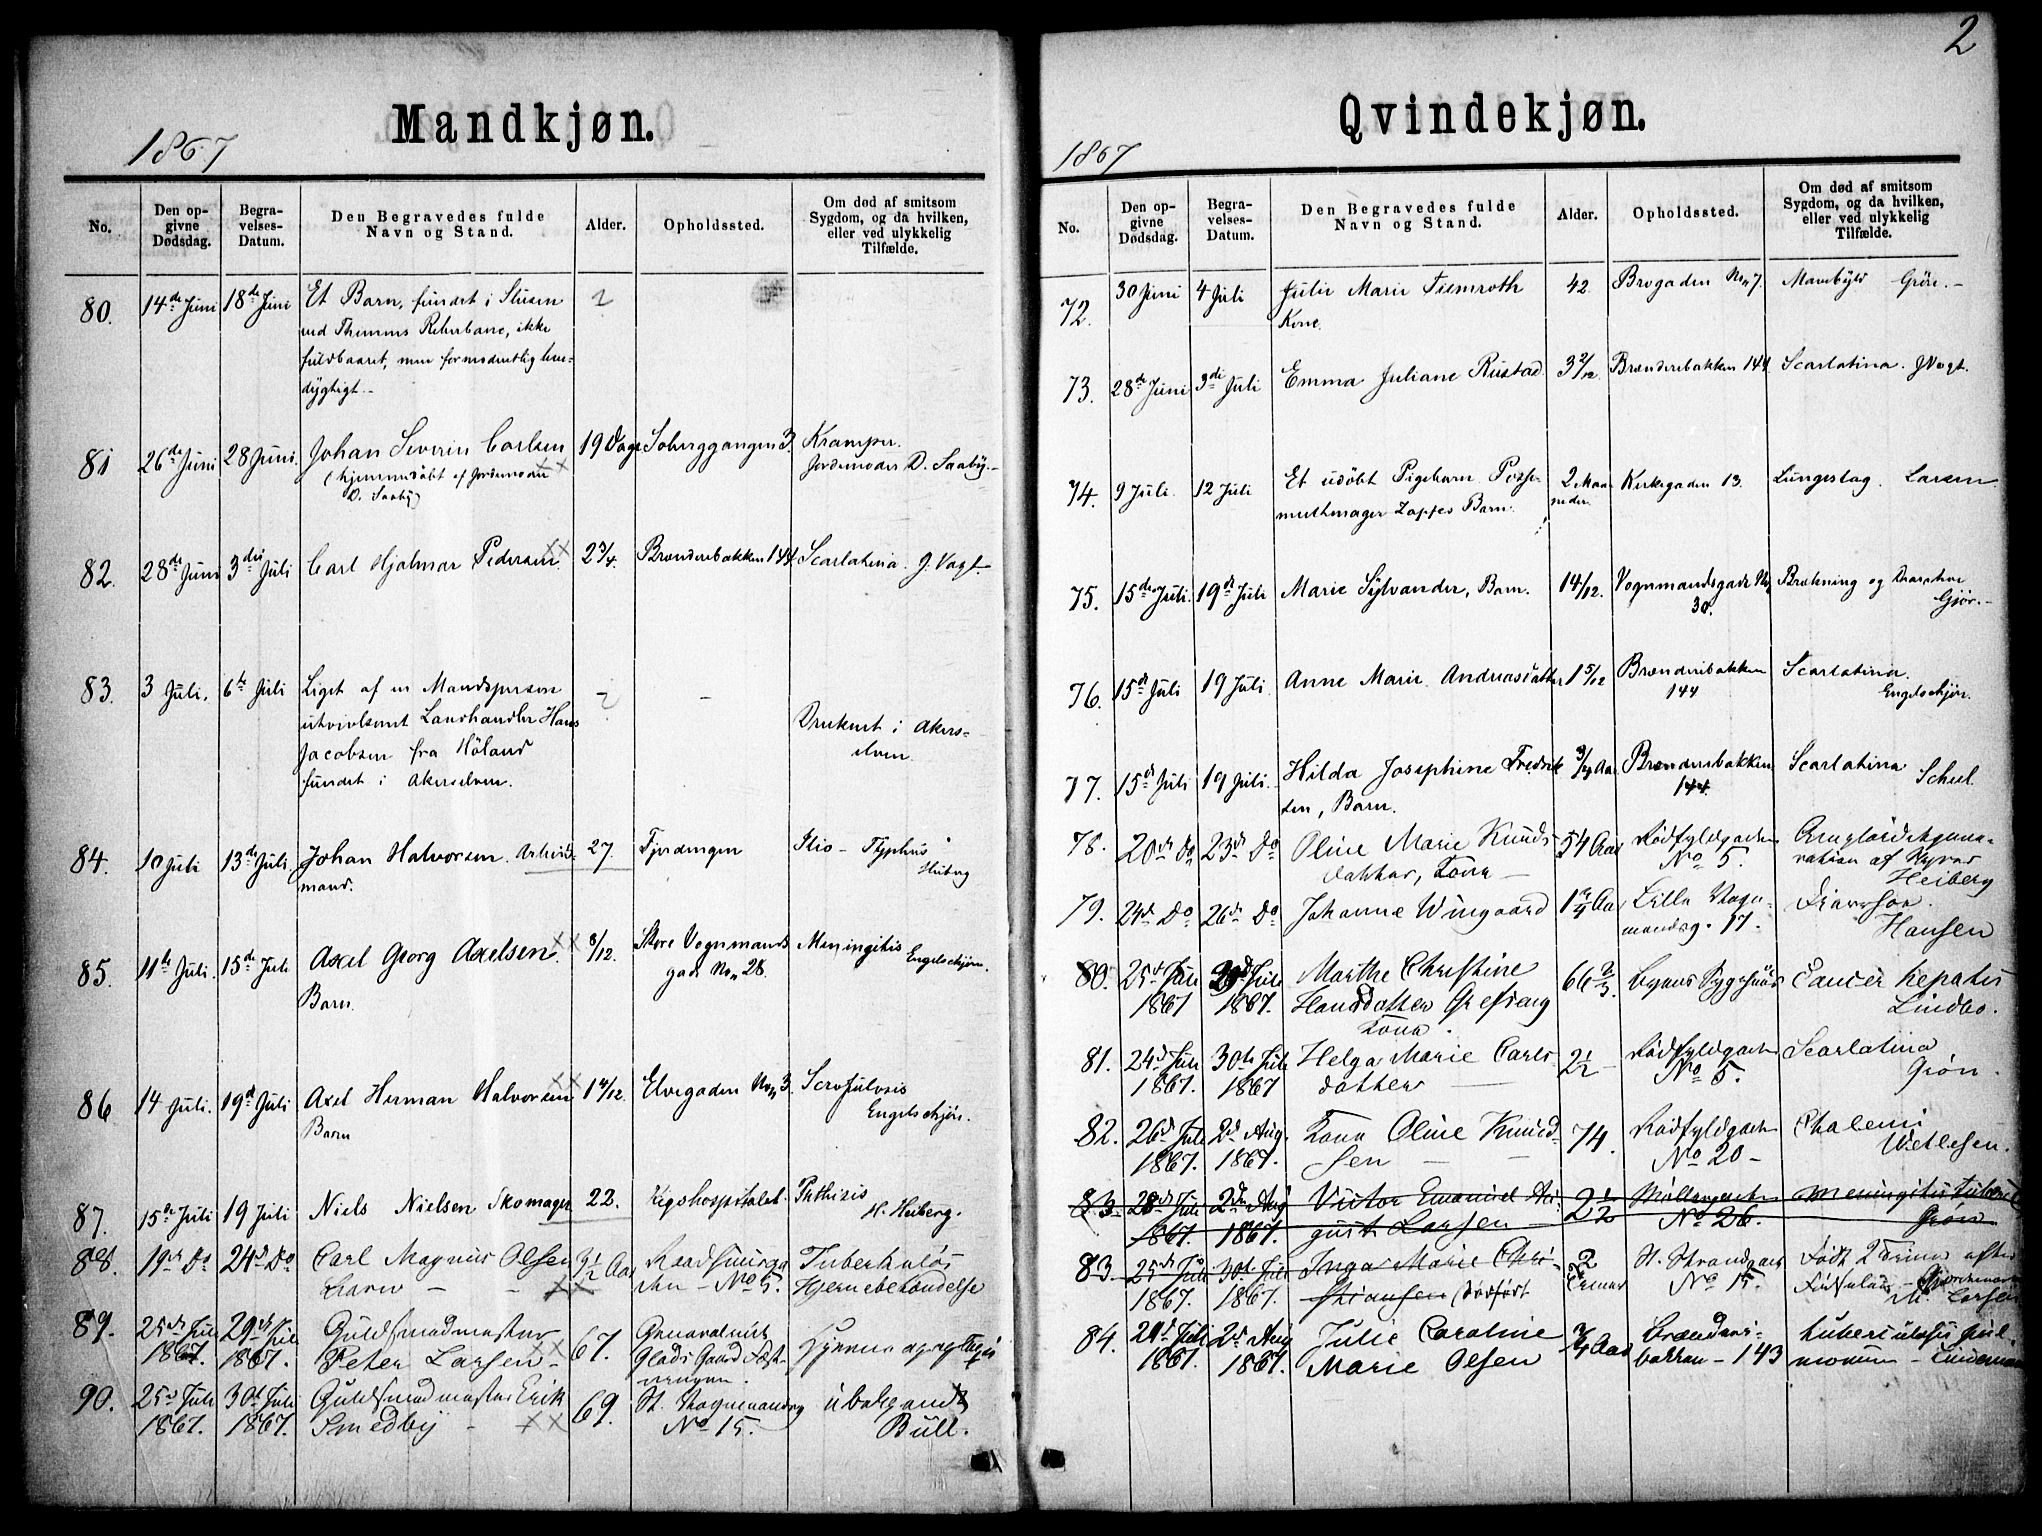 2
Mandkjøn.
1867
No.
Den op-
givne
Dødsdag.
Begra-
velses-
Datum.
Den Begravedes fulde
Navn og Stand.
Alder.
Opholdssted.
Om død af smitsom
Sygdom, og da hvilken,
eller ved ulykkelig
Tilfælde.
80. 14de Juni 18de Juni Et Barn, fundet i Slusen
ved Themms Reberbane, ikke
fuldbaaret, men formodentlig leve-
dygtigt.
81 26de Juni 28 Juni. Johan Severin Carlsen 19 Dage 3. Kramper.
(hjemmedøbt af Jordemoder Jordemoder D. Saaby.
D. Saaby)
82. 28de Juni 3die Juli Carl Hjalmar Pedersen 2 3/4. Brænderibakken 144 Scarlatina. J. Vogt.
83. 3 Juli. 6te Juli Liget af en Mandsperson
utvivlsomt Landhandler Hans
Jacobsen fra Höland
fundet i Akerselven.
-
Druknet i Akers-
elven.
84. 10 Juli 13de Juli Johan Halvorsen. Arbeids- 27. Fjerdingen Ilio - Typhus
mand. Heiberg
85. 11te Juli. 15de Juli Axel Georg Axelsen 8/12. Store Vognmands Meningitis
Barn. gade No 28. Engelschjön.
86 14 Juli. 19de Juli Axel Herman Halvorsen 1 4/12. Elvegaden No 3. Scrofulosis
Barn Engelschjön.
87. 15de Juli 19 Juli Niels Nielsen Skomager 22. Rigshospitalet. Pthisis
H. Heiberg.
88. 19de Do 24de Do Carl Magnus Olsen 3 1/2 Aar
Barn - - No 5. Hjernebetændelse
89. 25de Juli 29de Juli Guldsmedmester 67.
1867. 1867. Peter Larsen
90. 25de Juli 30te Juli Guldsmedmester Erik 69. St. Vognmandsg
1867. 1867. Smedby - No 15. Bull.
Qvindekjøn.
1867
No.
Den op-
givne
Dødsdag.
Begra-
velses-
Datum.
Den Begravedes fulde
Navn og Stand.
Alder.
Opholdssted.
Om død af smitsom
Sygdom, og da hvilken,
eller ved ulykkelig
Tilfælde.
72. 30 Juni 4 Juli Julie Marie Tiemroth 42. Brogaden No 7.
Kone.
73. 28de Juni 3die Juli Emma Juliane Rustad. 3 2/12. Brænderibakken 144 Scarlatina. J Vogt.
74. 9 Juli. 12 Juli Et udöbt Pigebarn Posse- 2 Maa- Kirkegaden 13. Lungeslag. Larsen
mentmager Zapfes Barn. neder
75. 15de Juli. 19de Juli Marie Sylvander, Barn. 14/12. Vognmandsgade No Brækning og Diarrhoe
30. Gjör.
76. 15de Juli 19 Juli. Anne Marie Andreasdatter 1 5/12 Brænderibakken Scarlatina.
144 Engelschjön.
77. 15de Juli 19 Juli. Hilda Josephine Fredrik- 3/4 Aar Brænderibakken Scarlatina
sen, Barn. 144. Scheel
78. 20de Do 23de Do Oline Marie Knuds- 54 Aar Rødfyldgaden
datter, Kone No 5. Heiberg
79. 24de Do 26de Do Johanne Wingaard 1 Aar Lille Vogn- Diarrhoe.
mandsg. 17. Hansen
80. 25de Juli Juli Marthe Christine 66 2/3. Byens Sygehus Cancer hepatis
1867 1867. Hansdatter Lindbo.
Kone.
81. 24de Juli 30te Juli Helga Marie Carls- 2 1/2 Rødfyldgaden Scarlatina
1867. 1867 datter No 5. Grön.
82. 26de Juli 2de Aug. Kone Oline Knud- 74. Rødfyldgaden
1867. 1867. sen - - No 20 - Wetlesen.
83. 28de Juli 2den Aug Victor Emanuel Au- 2 1/2 Møllergaden Meningitis
1867. 1867. gust Larsen No 26. Grön
83. 25de Juli 30te Juli Inga Marie Chri- 2 St. Strandgade Født 2 Timer efter
1867. 1867. stiansen (dödfödt Timer No 15. Larsen
84. 29de Juli 2de Aug Julie Caroline 3/4 Aar Brænderi- tuberculosis pul-
1867. 1867. Marie Olsen bakken - 143 monum -